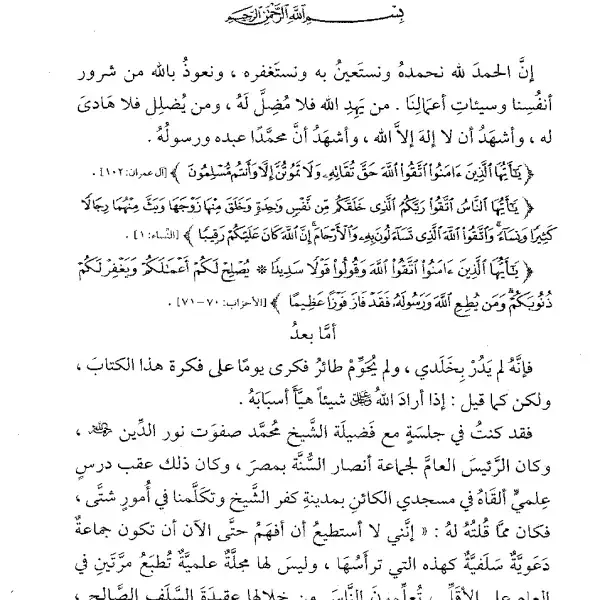 بِسْمِ اللَّهِ الرَّحْمَٰنِ الرَّحِيمِ
إنَّ الحمدَ لله نحمدهُ ونستعينُ به ونستغفره ، ونعوذُ بالله من شرور
أنفُسِنا وسيئاتِ أعمالِنا . من يَهدِ الله فلا مُضِلَّ لَهُ ، ومن يُضلِل فلا هادىَ
له ، وأشهَدُ أن لا إلهَ إلاَّ الله ، وأشهَدُ أنَّ محمَّدًا عبده ورسولُهُ .
﴿ يَٰٓأَيُّهَا ٱلَّذِينَ ءَامَنُوا ٱتَّقُوا ٱللَّهَ حَقَّ تُقَاتِهِۦ وَلَا تَمُوتُنَّ إِلَّا وَأَنتُم مُّسْلِمُونَ ﴾ [آل عمران: ١٠٢] .
﴿ يَٰٓأَيُّهَا ٱلنَّاسُ ٱتَّقُوا رَبَّكُمُ ٱلَّذِى خَلَقَكُم مِّن نَّفْسٍ وَٰحِدَةٍ وَخَلَقَ مِنْهَا زَوْجَهَا وَبَثَّ مِنْهُمَا رِجَالًا
كَثِيرًا وَنِسَآءً ۚ وَٱتَّقُوا ٱللَّهَ ٱلَّذِى تَسَآءَلُونَ بِهِۦ وَٱلْأَرْحَامَ ۚ إِنَّ ٱللَّهَ كَانَ عَلَيْكُمْ رَقِيبًا ﴾ [النساء: ١] .
﴿ يَٰٓأَيُّهَا ٱلَّذِينَ ءَامَنُوا ٱتَّقُوا ٱللَّهَ وَقُولُوا قَوْلًا سَدِيدًا * يُصْلِحْ لَكُمْ أَعْمَٰلَكُمْ وَيَغْفِرْ لَكُمْ
ذُنُوبَكُمْ ۗ وَمَن يُطِعِ ٱللَّهَ وَرَسُولَهُۥ فَقَدْ فَازَ فَوْزًا عَظِيمًا ﴾ [الأحزاب: ٧٠-٧١] .
أمَّا بعدُ
فإنَّهُ لم يَدُرْ بِخَلَدي ، ولم يُحَوِّمْ طائرُ فكرى يومًا على فكرة هذا الكتابَ ،
ولكن كما قيل : إذا أرادَ اللهُ ﷻ شيئاً هيَّأَ أسبَابَهُ .
فقد كنتُ في جلسَةٍ مع فَضيلَة الشَّيخ مُحَمَّد صفوَت نور الدِّين ،
وكان الرَّئيسَ العامَّ لجماعة أنصار السُّنَّة بمصرَ ، وكان ذلك عقب درسٍ
عِلميٍّ ألقَاهُ في مسجدي الكائن بمدينةِ كفر الشَّيخ وتكلَّمنا في أُمورٍ شتَّى ،
فكان ممَّا قُلتُهُ لهُ : « إنَّني لا أستطيعُ أن أفهَمُ حتَّى الآن أن تكون جماعةٌ
دَعَويَّةٌ سَلَفيَّةٌ كهذه التي ترأسُهَا ، وليسَ لها مجلَّةٌ علميَّةٌ تُطبَعُ مرَّتَينِ في
العام على الأقلِّ ، تُعلِّمونَ النَّاسَ من خلالها عقيدَةَ السَّلَفِ الصَّالح ،